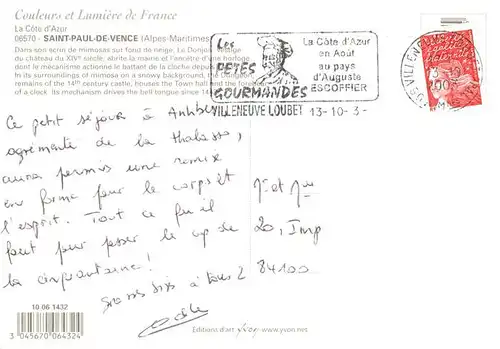 Couleurs et Lumière de France
La Côte d'Azur
06570 - SAINT-PAUL-DE-VENCE (Alpes-Maritimes)
Dans son écrin de mimosas sur fond de neige, Le Donjon, vestige
du château du XIVe siècle, abrite la mairie et l'ancêtre d'une horloge
dont le mécanisme actionne le battant de la cloche depuis
In its surroundings of mimosa on a snowy background, the Donjon,
remains of the 14th century castle, houses the Town hall and the
clock. Its mechanism drives the bell tongue since 14
Les
FETES
GOURMANDES
La Côte d'Azur
en Août
au pays
d'Auguste
ESCOFFIER
VILLENEUVE LOUBET 13-10-3-
Ce petit séjour à Antibes
agrémenté de la thalasso,
aura permis une remise
en forme pour le corps et
l'esprit. Tout ce qu'il
faut pour passer le cap de
la cinquantaine!
Gros bisous à tous 2
Odile
Mr et Mme
20, Imp
84100
10 06 1432
3 045670 064324
Editions d'art yvon www.yvon.net